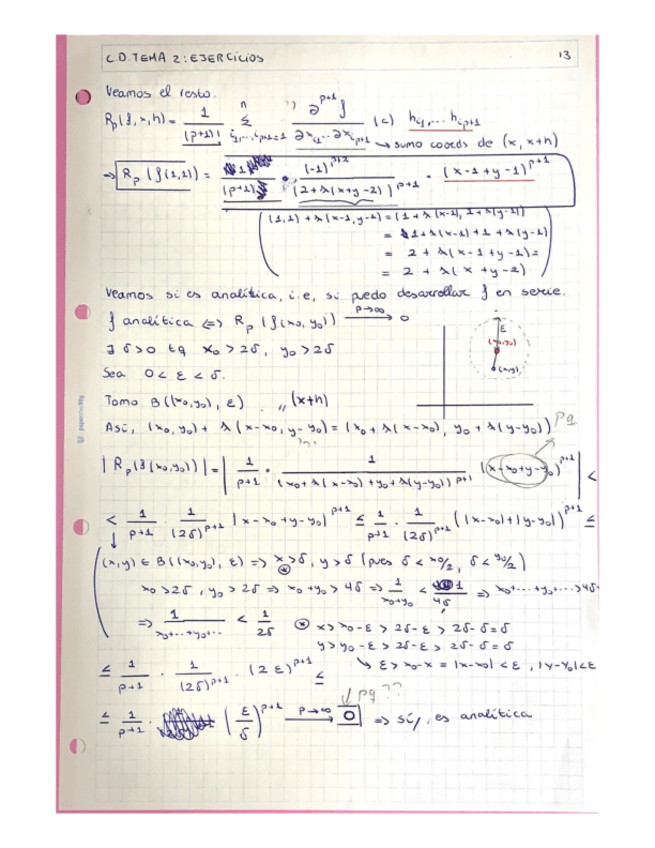 C.D. TEMA 2: EJERCICIOS 13
Veamos el resto.
Rp(f,x,h) = 1/(p+1)! Σ^n_{i1,...,ip+1=1} ∂^{p+1} f / ∂x_{i1}...∂x_{ip+1} (c) h_{i1}... h_{ip+1}
→ sumo coords de (x, x+h)
→ Rp (f(1,1)) = 1/(p+1) · (-1)^{p+2} / (2+λ(x+y-2))^{p+1} · (x-1+y-1)^{p+1}
(1,1) + λ(x-1, y-1) = (1+λ(x-1), 1+λ(y-1))
= 1+λ(x-1)+1+λ(y-1)
= 2 + λ(x-1+y-1) =
= 2 + λ(x+y-2)
Veamos si es analítica, i.e, si puedo desarrollar f en serie.
f analítica <=> Rp (f(x0, y0)) p→∞ → 0
∃ δ>0 tq x0 > 2δ, y0 > 2δ
ε
(x0,y0)
(x,y)
Sea 0 < ε < δ.
Tomo B((x0,y0), ε) (x+h)
Así, (x0, y0) + λ(x-x0, y-y0) = (x0+λ(x-x0), y0+λ(y-y0)) pq
|Rp(f(x0,y0))| = | 1/p+1 · 1/(x0+λ(x-x0)+y0+λ(y-y0))^{p+1} (x-x0+y-y0)^{p+1} | <
< 1/p+1 · 1/(2δ)^{p+1} |x-x0+y-y0|^{p+1} ≤ 1/p+1 · 1/(2δ)^{p+1} (|x-x0|+|y-y0|)^{p+1} ≤
(x,y) ∈ B((x0,y0), ε) => x>δ, y>δ (pues δ < x0/2, δ < y0/2)
x0>2δ, y0>2δ => x0+y0 > 4δ => 1/x0+y0 < 1/4δ => x0+...+y0+...>4δ
=> 1/x0+...+y0+... < 1/2δ
⊛ x > x0-ε > 2δ-ε > 2δ-δ=δ
y > y0-ε > 2δ-ε > 2δ-δ=δ
↳ ε > x0-x = |x-x0| < ε, |y-y0|<ε
≤ 1/p+1 · 1/(2δ)^{p+1} · (2ε)^{p+1} ≤
pq ??
≤ 1/p+1 · (ε/δ)^{p+1} p→∞ → 0 => sí, es analítica